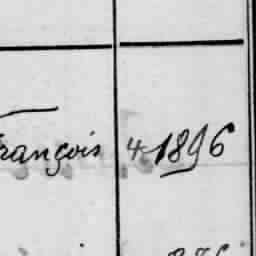 François 4-1896